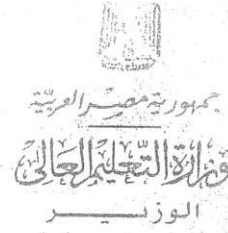 جمهورية مصر العربية
وزارة التعليم العالى
الوزير